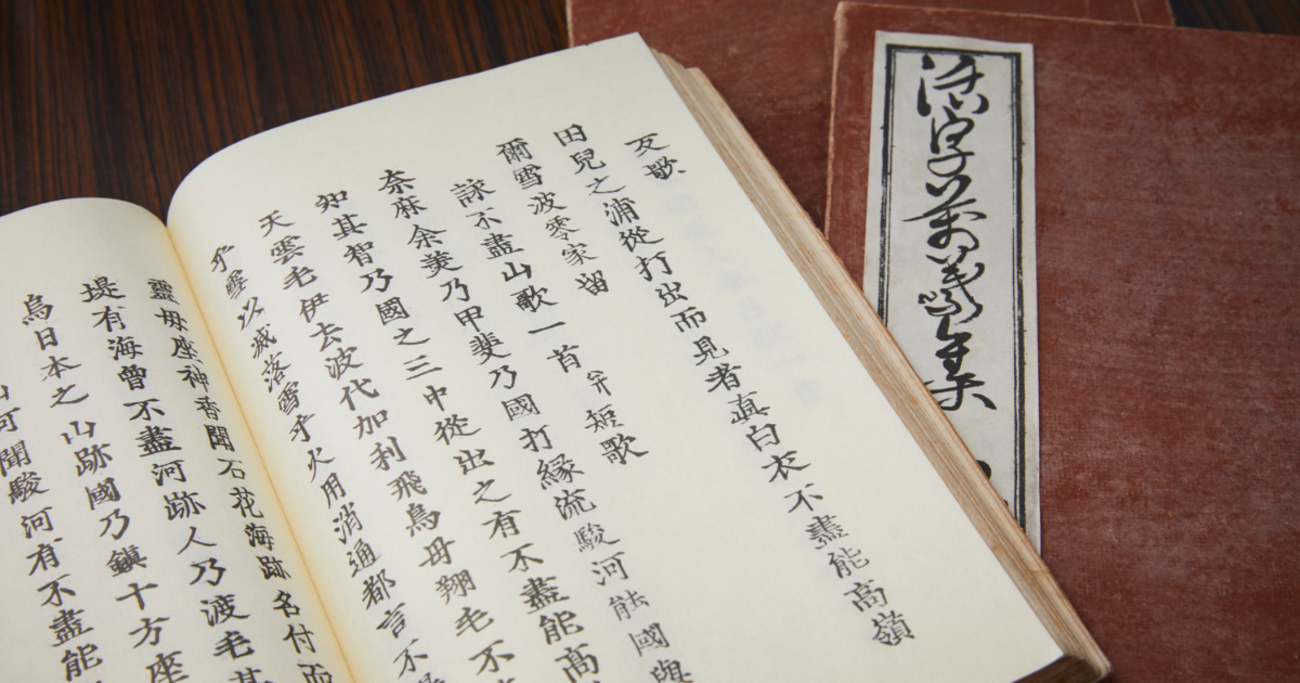 反歌
田兒之浦從打出而見者真白衣不盡能高嶺
爾雪波零家留
詠不盡山歌一首并短歌
奈麻余美乃甲斐乃國打縁流駿河能國與
知其智乃國之三中從出之有不盡能高
天雲毛伊去波代加利飛鳥毋翔毛不
乎雪以滅落雪乎火用消通都言不
靈毋座神香聞石花海跡名付而
堤有海曾不盡河跡人乃渡毛其
焉日本之山跡國乃鎮十方座
可聞駿河有不盡能
活字萬葉集